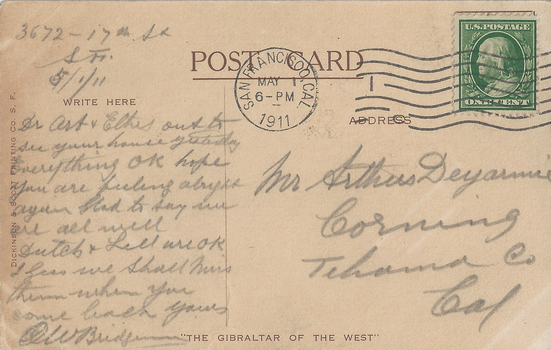 3672-17th St
S.F.
5/1/11
POST CARD
WRITE HERE
SAN FRANCISCO, CAL.
MAY 1
6-PM
1911
1
U.S. POSTAGE
ONE CENT
ADDRESS
Dr Art & out to
see your house yesterday
Everything OK hope
you are feeling alright
again Glad to say we
are all well
Dutch & Lill are OK
I Gess we Shall Miss
them when you
come back yours
Bridgeman
Mr Arthur Deyarmie
Corning
Tehama Co
Cal
DICKINSON & SCOTT PRINTING CO. S. F.
"THE GIBRALTAR OF THE WEST"